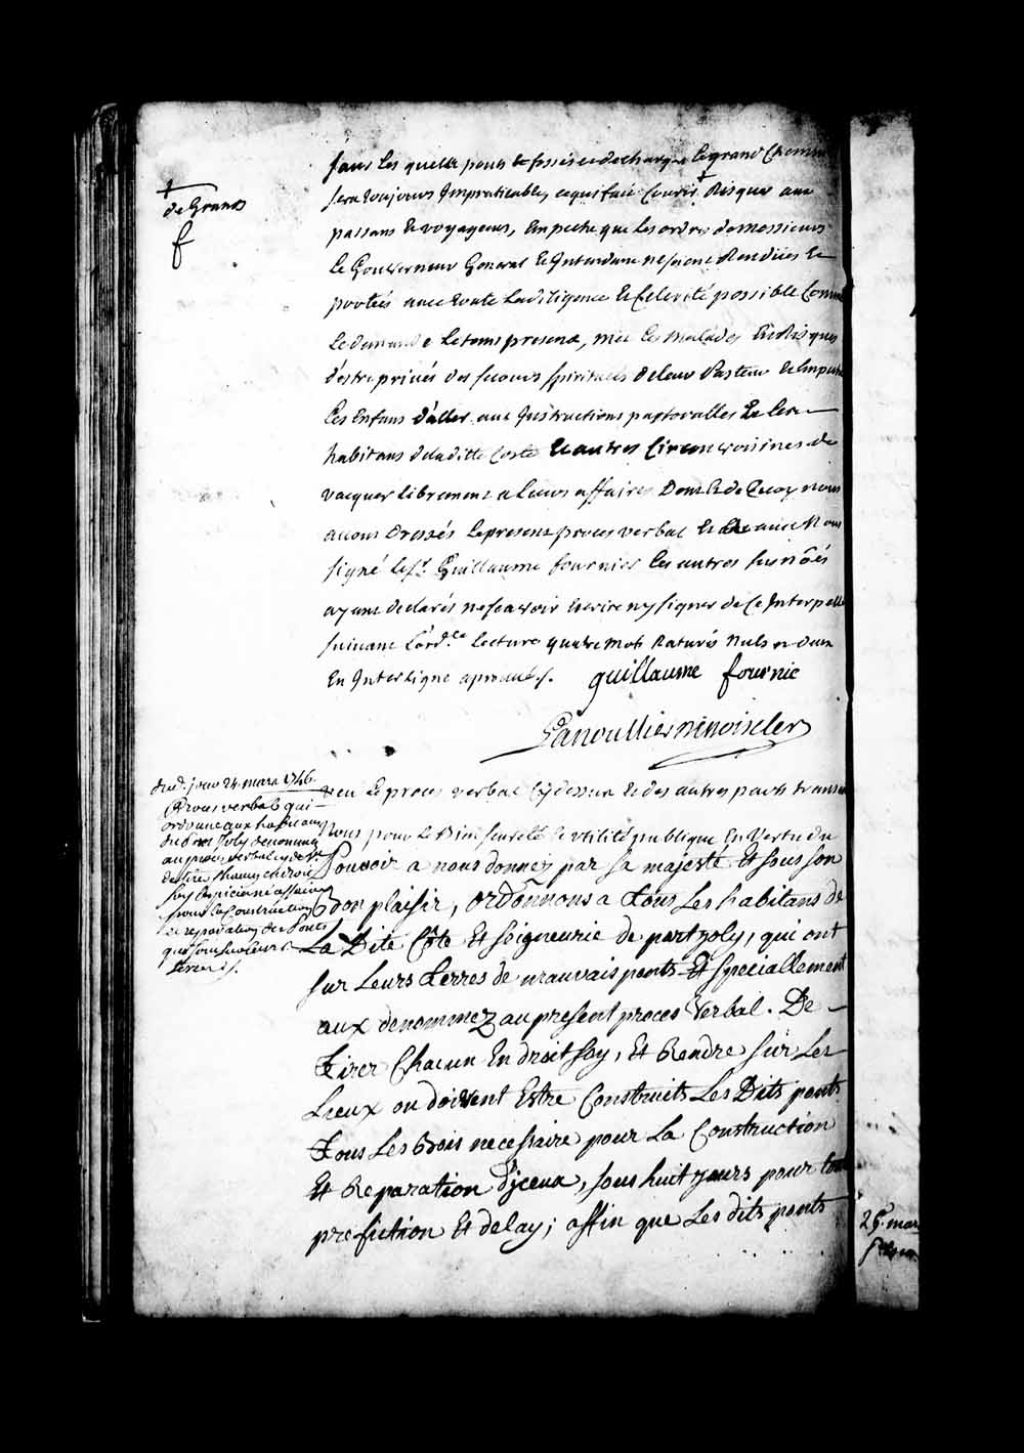 sans Les quelle ponts & fossés de decharge Le grand Chemin
sera toujours Impraticable, ce qui fait Courir Risque aux
de Grands
passans & voyageurs, Empeche que Les ordres de Messieurs
Le Gouverneur General & Intendant ne soient Rendües &
portées avec toute La diligence & Celerité possible Comme
Le demande Le tems present, met Les malades En Risques
d'estre privés des secours spirituels de Leur Pasteur &
Les Enfans d'aller aux Instructions pastoralles & Les
habitans de la ditte Coste & autres Circonvoisines de
vacquer librement a Leurs affaires Dont & de Quoy nous
avons dressés Le present proces verbal & avec Nous
signé Le Sr. Guillaume fournier Les autres susnõés
ayant declarés ne scavoir Ecrire ny signer de Ce Interpellé
suivant L'ord.ce lecture quatre mots Raturés Nuls & deux
En Interligne aprouvés /.
guillaume fournie
Lanoullier De Boisclerc
du d. jour 24. mars 1746.
Proces verbal qui
ordonne aux habitans
denommé
au proces verbal cy dessus
de tirer chacun en droit
soy Les pieces necessaires
pour la Construction
& reparation des Ponts
qui sont sur Leurs
terres /.
Veu Le proces verbal Cy dessus & des autres parts
Nous pour Le Bien seureté & utilité publique En Vertu du
Pouvoir a nous donnez par sa majesté Et sous son
Bon plaisir, ordõnnons a tous Les habitans de
La Dite Côte Et seigneurie de portjoly, qui ont
sur Leurs terres de mauvais ponts Et speciallement
aux denommez au present proces Verbal. De
tirer Chacun En droit soy, Et Rendre sur Les
Lieux ou doivent Estre Construits Les Dits ponts
tous Les Bois necessaire pour La Construction
Et Reparation D'yceux, sous huit jours pour tout
prefiction Et delay; affin que Les dits ponts
25. mars